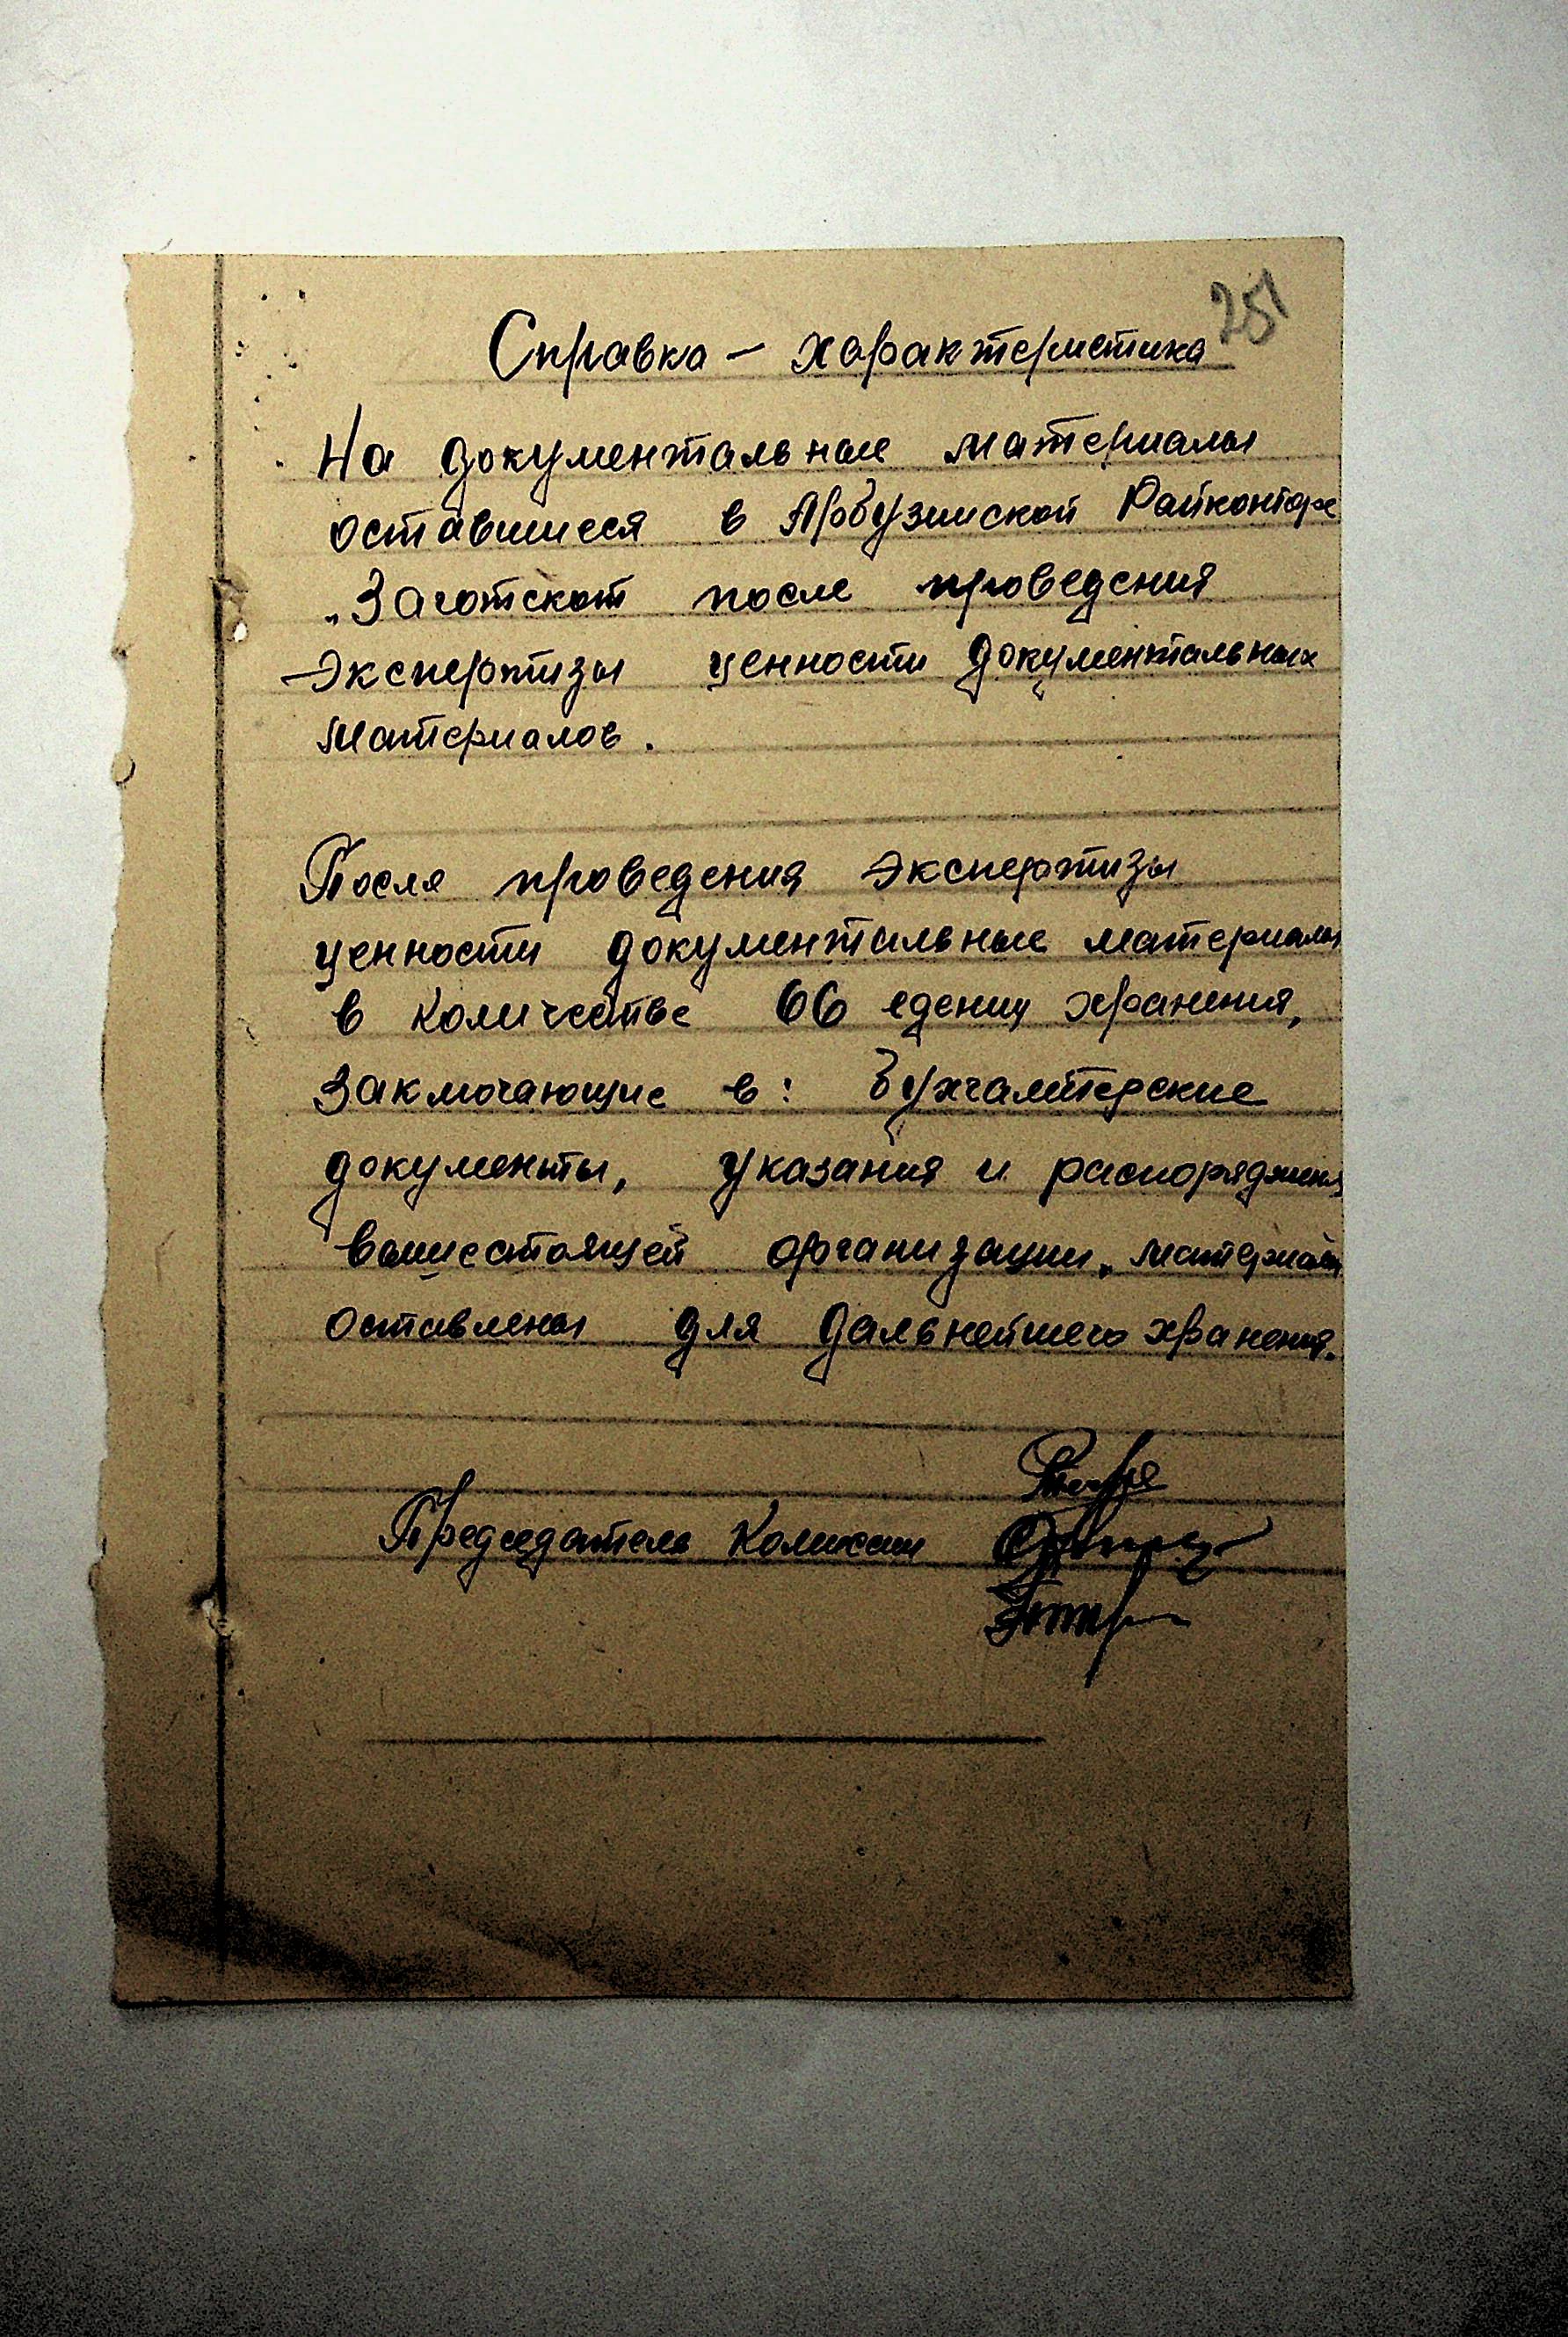 251
Справка – характеристика
На документальные материалы
оставшиеся в Арбузинской Райконторе
„Заготскот после проведения
экспертизы ценности документальных
материалов.
После проведения экспертизы
ценности документальные материалы
в количестве 66 едениц хранения,
заключающие в: бухгалтерские
документы, указания и распоряджения
вышестоящей организации, материалы
оставлены для дальнейшего хранения.
Председатель Комиссии